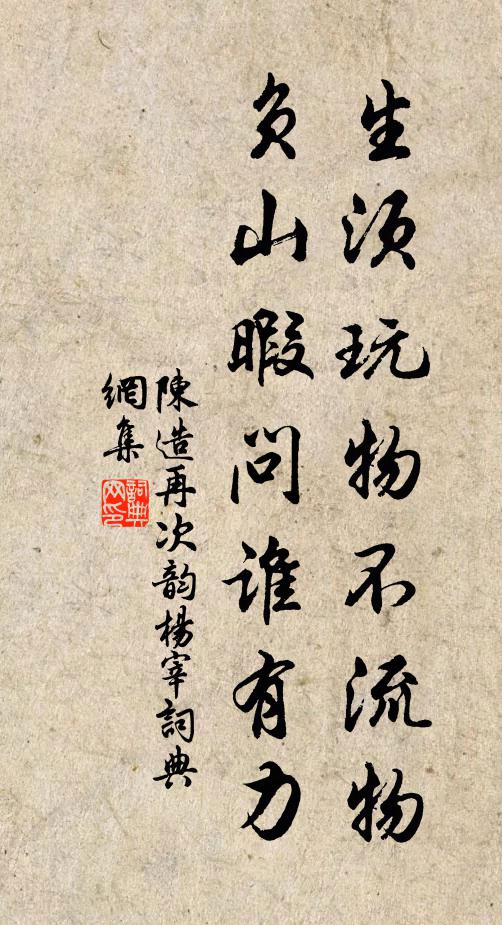 生須玩物不流物
負山暇問誰有力
陳造再次韵楊宰詞典
網集
詞典
网印